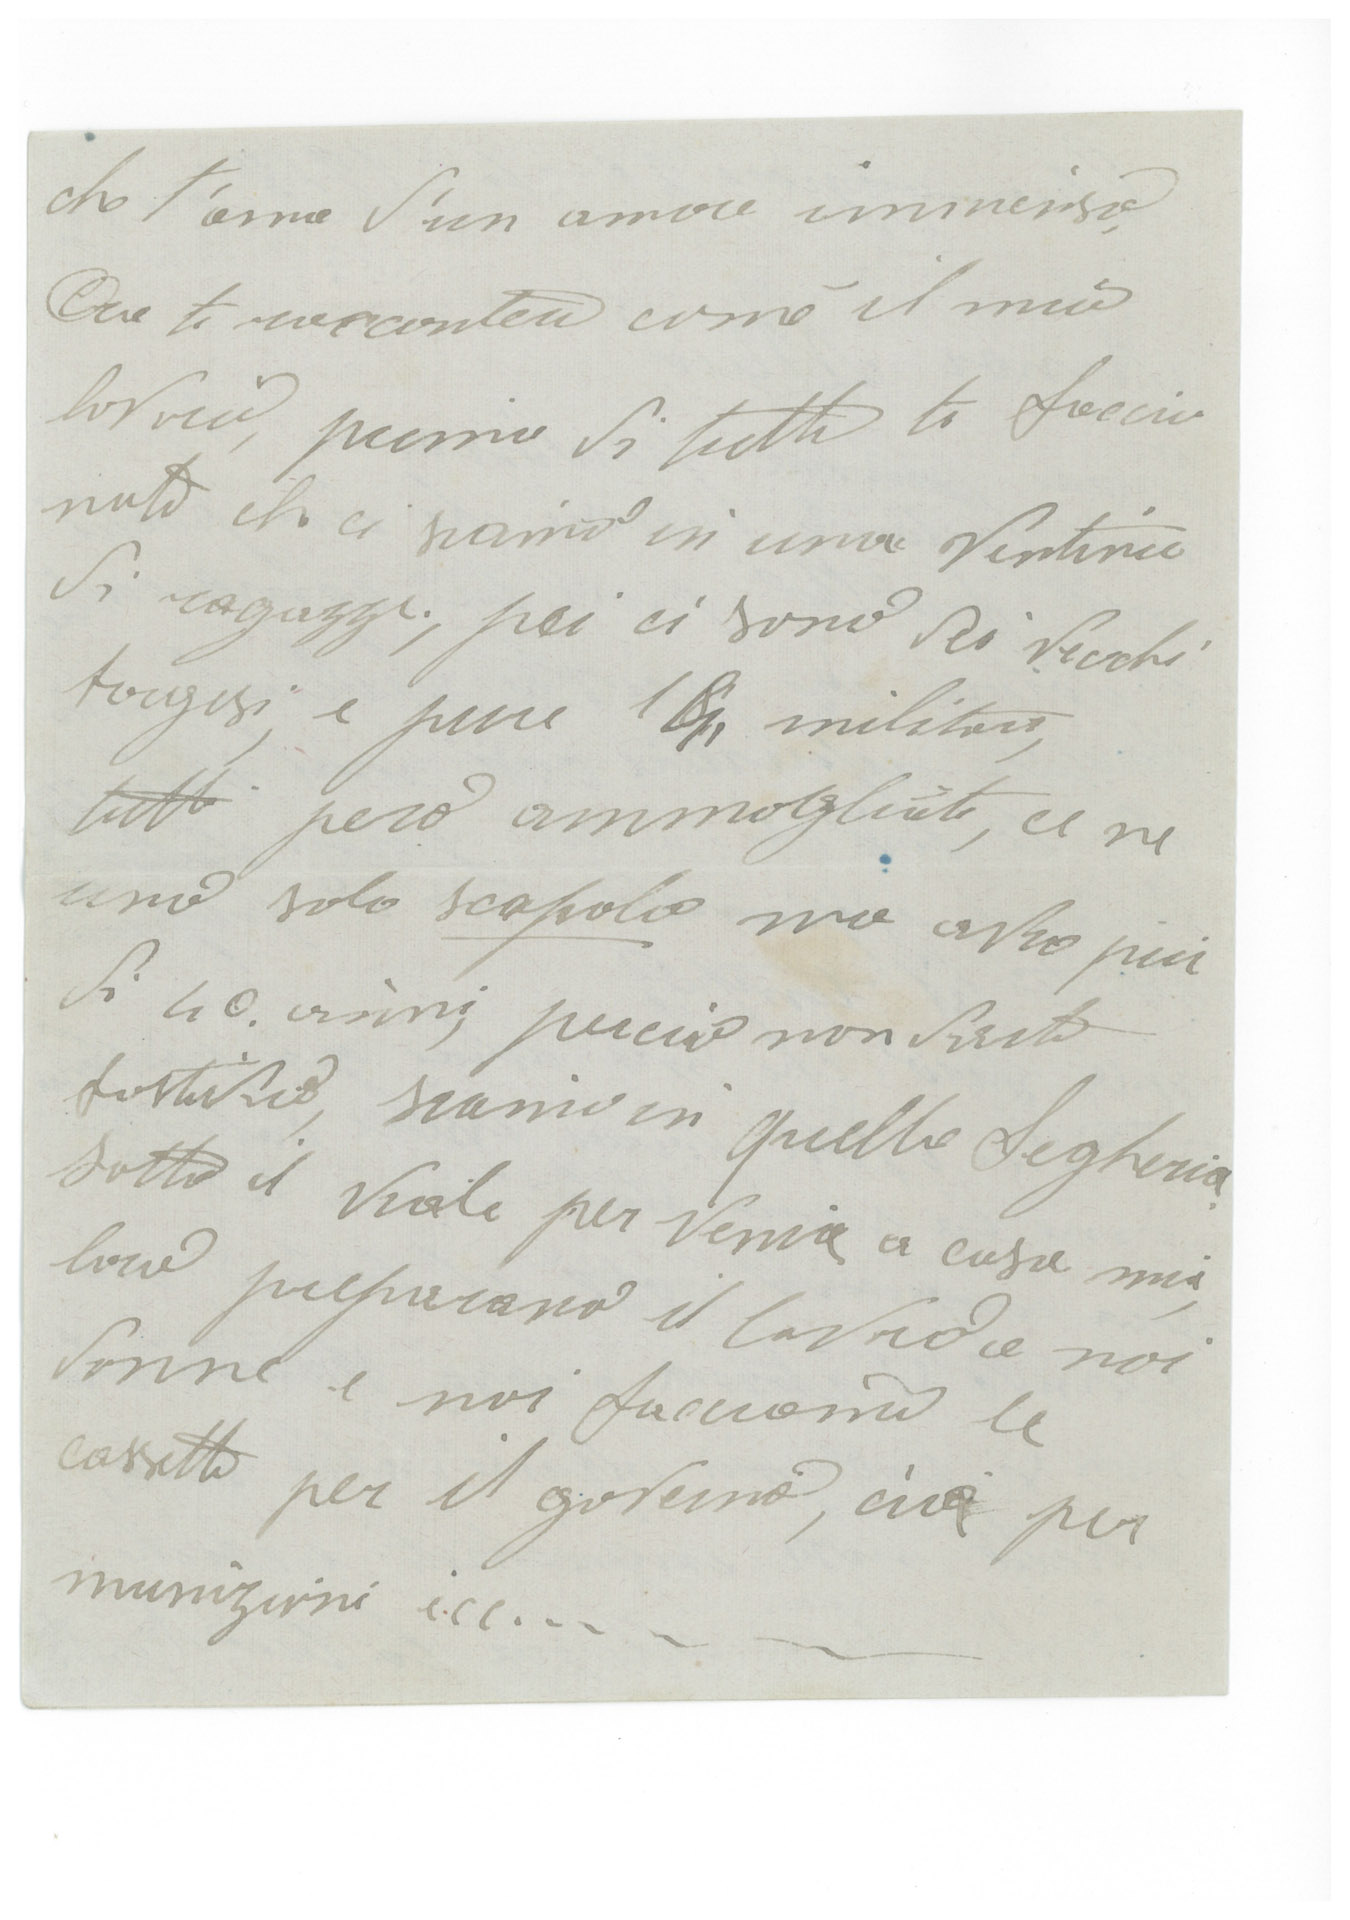 che t'ama d'un amore immenso,
Ora ti racconterò com'è il mio
lavoro, prima di tutto ti faccio
noto che ci siamo in una ventina
di ragazze, poi ci sono dei vecchi
borgesi, e pure militari,
tutti però ammogliati, ce ne
uno solo scapolo ma avrà più
di 40. anni, perciò non desta
fastidio, siamo in quella Segheria
sotto il viale per venire a casa mia,
loro preparano il lavoro a noi
donne e noi facciamo le
cassette per il governo, cioè per
munizioni ecc....